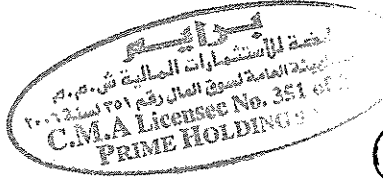 برايم
القابضة للاستثمارات المالية ش.م.م
الهيئة العامة لسوق المال رقم ٣٥١ لسنة ٢٠٠٦
C.M.A Licensee No. 351 of
PRIME HOLDING